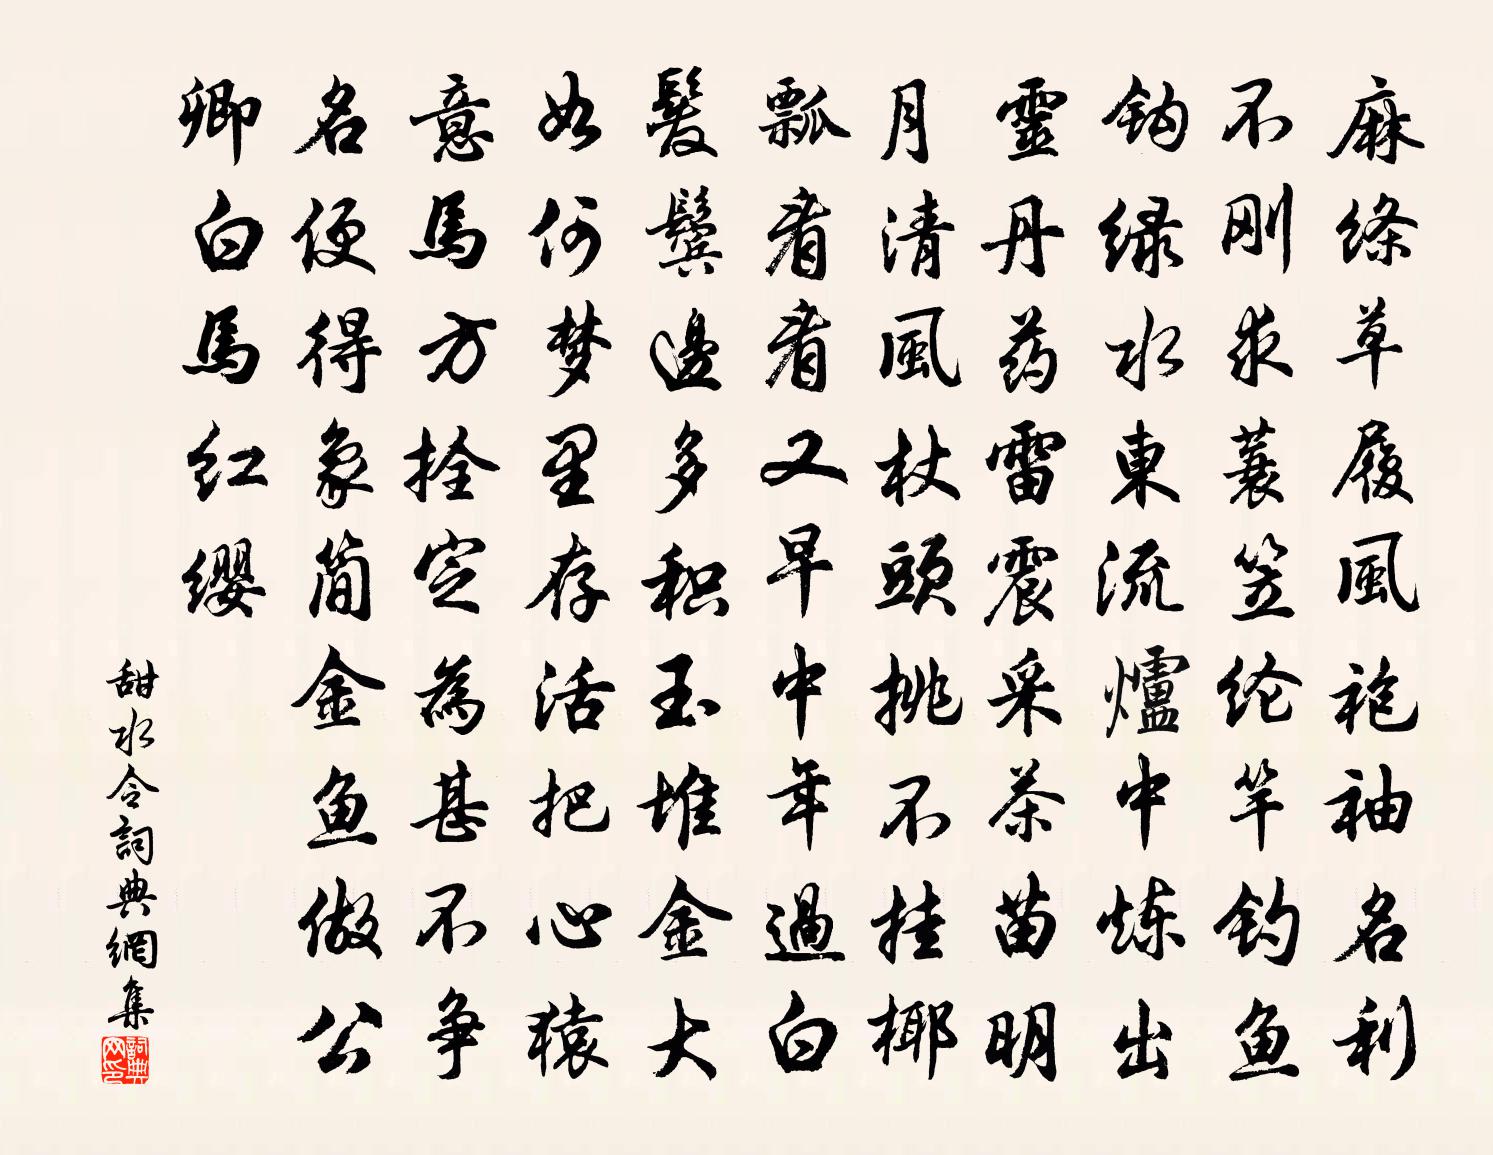 麻絛草履風袍袖名利
不刚求蓑笠纶竿钓鱼
钩绿水東流爐中炼出
靈丹药雷震采茶苗明
月清風杖頭挑不挂椰
瓢看看又早中年過白
髮鬓邊多积玉堆金大
如何梦里存活把心猿
意馬方拴定為甚不争
名便得象简金鱼做公
卿白馬红缨
甜水令詞典網集
詞典网印